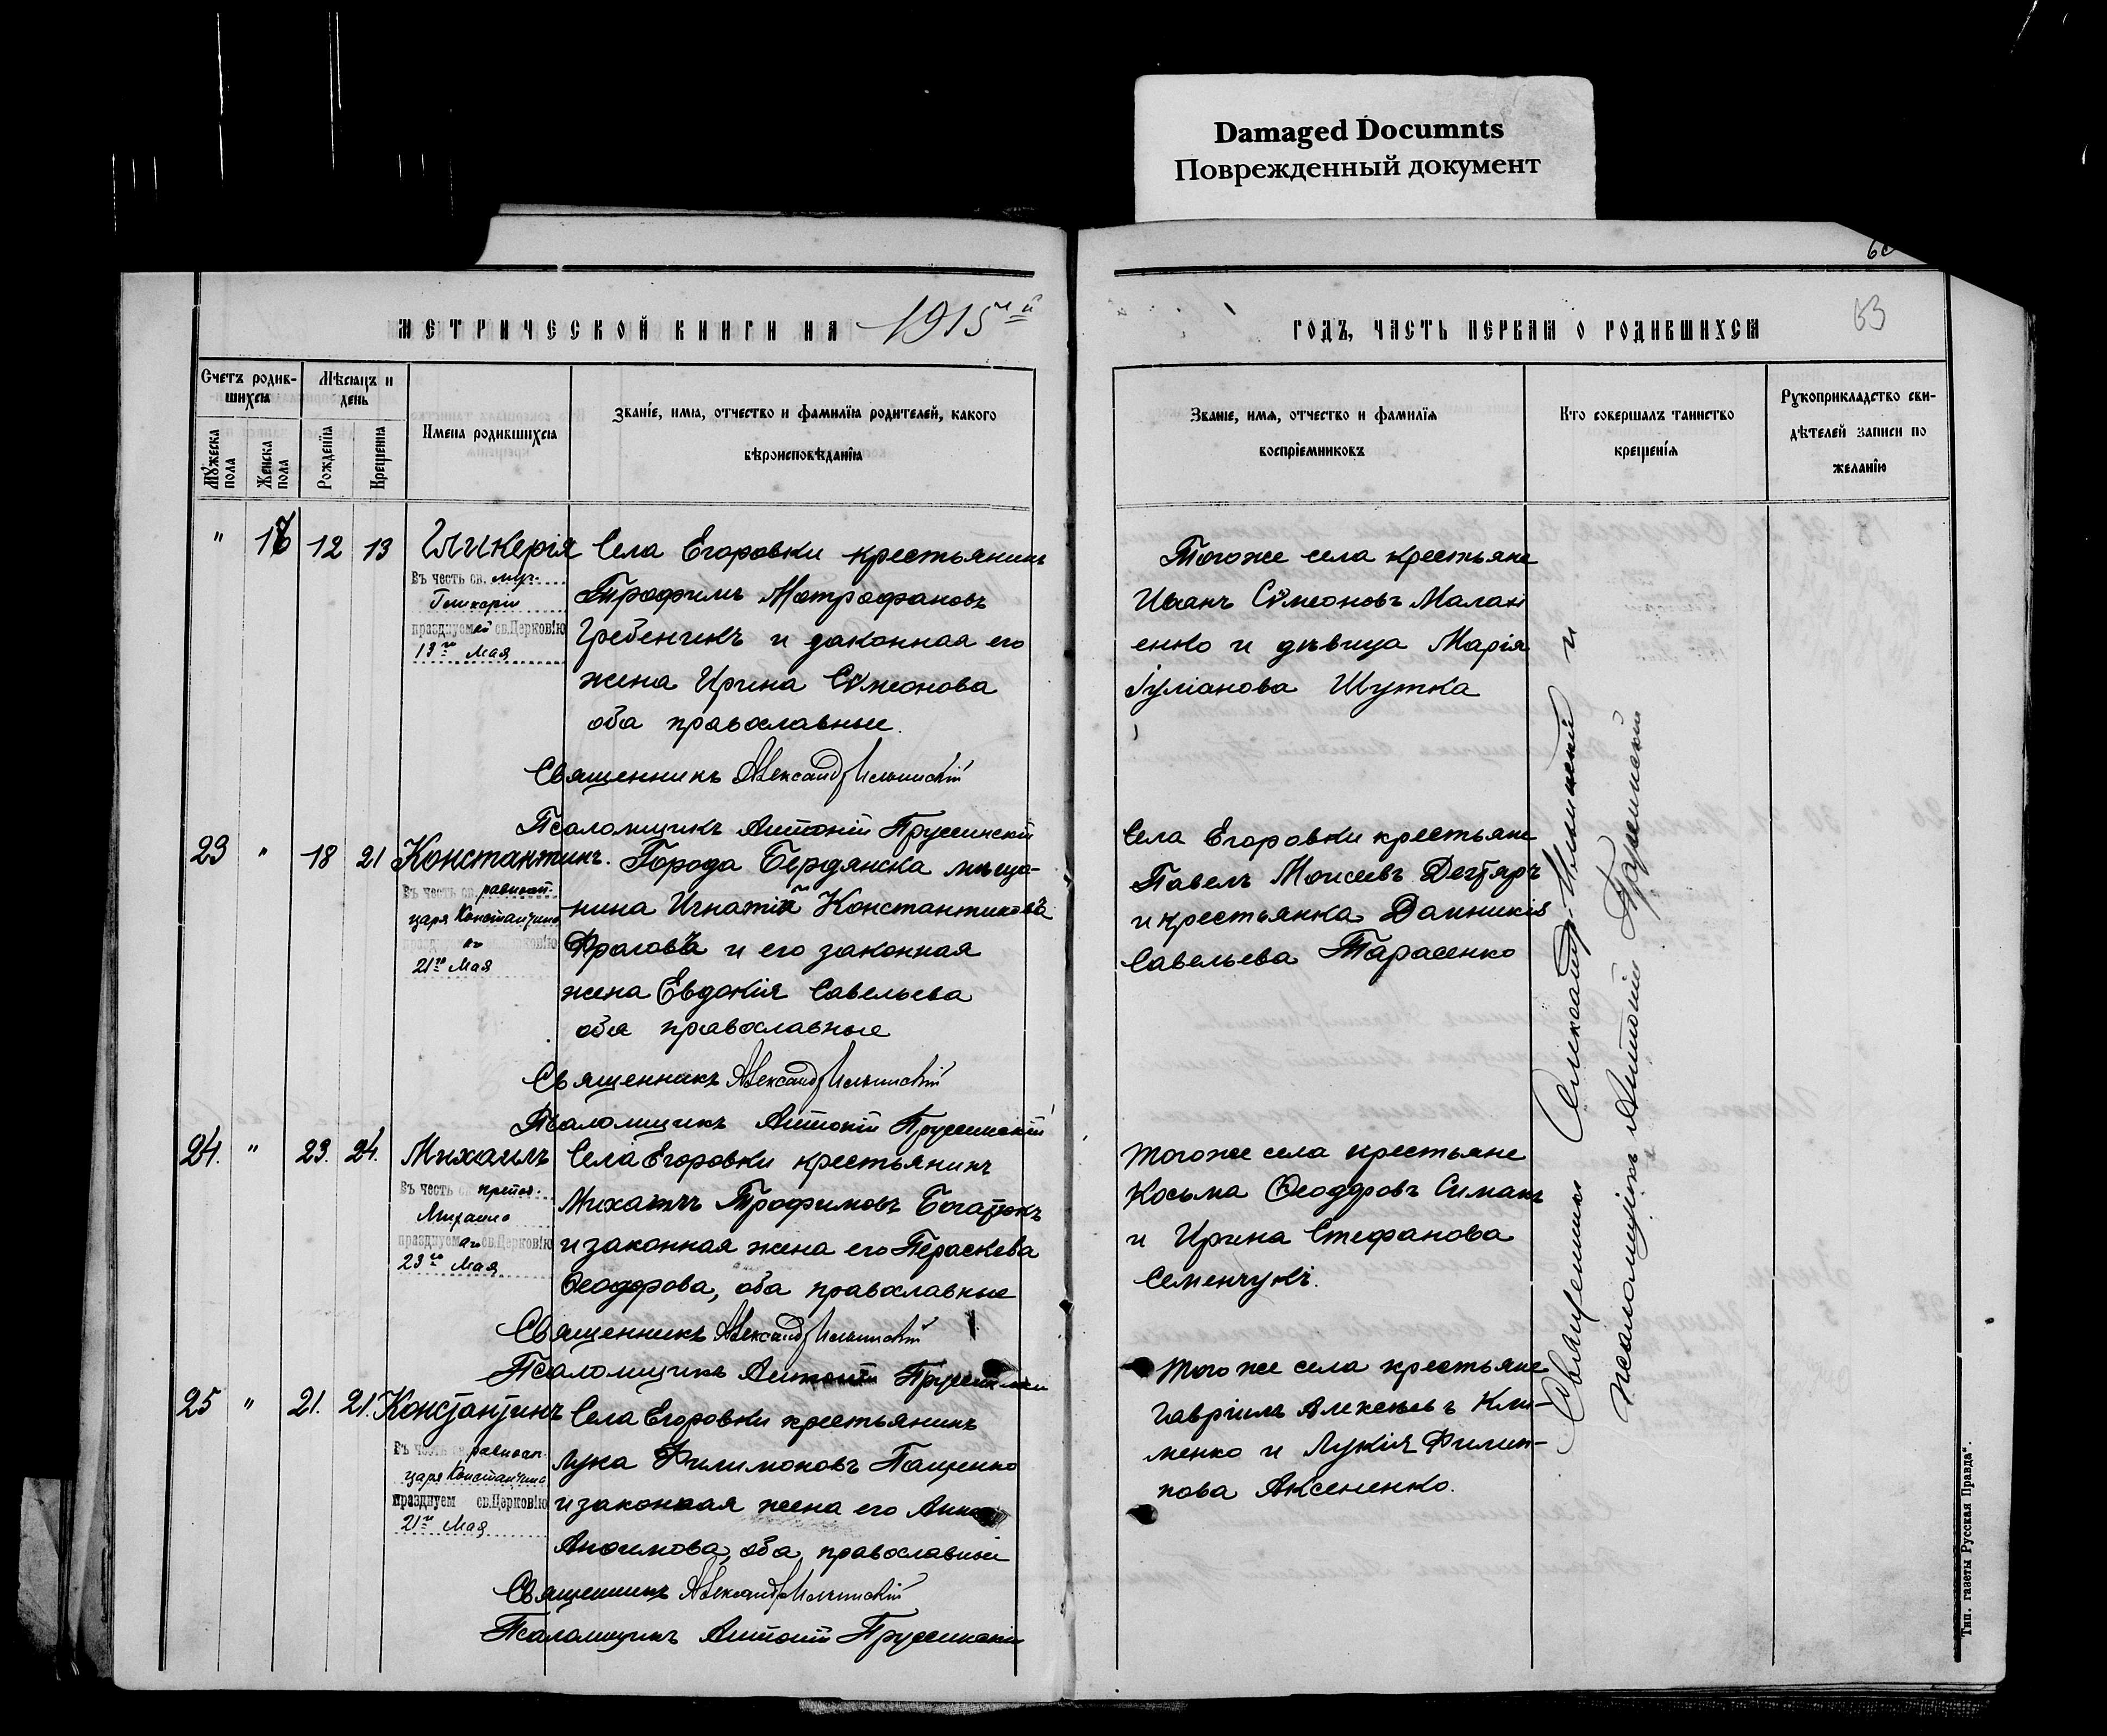 Damaged Documnts
Поврежденный документ
63
МЕТРИЧЕСКОЙ КНИГИ НА 1915й
ГОДЪ, ЧАСТЬ ПЕРВАЯ О РОДИВШИХСЯ
Счетъ родив-
шихся
Мѣсяцъ и
день
Мужеска пола
Женска пола
Рожденія
Крещенія
Имена родившихся
Званіе, имя, отчество и фамилія родителей, какого
вѣроисповѣданія
Званіе, имя, отчество и фамилія
воспріемниковъ
Кто совершалъ таинство
крещенія
Рукоприкладство сви-
дѣтелей записи по
желанію
" 12 13 Гликерія
Въ честь св. муч.
Гликеріи
празднуемой св.Церковію
13го Мая
Села Егоровки крестьянинъ
Трофимъ Митрофановъ
Гребенникъ и законная его
жена Ирина Сѵмеонова
оба православные.
Священникъ Александръ Ильинскій
Псаломщикъ Антоній
Тогоже села крестьяне
Иванъ Сѵмеоновъ Малах
енко и дѣвица Марія
Іуліанова Шутка
23 " 18 21 Константинъ.
Въ честь св. равноап.
царя Константина
21го Мая
Города Бердянска мѣща-
нина Игнатій Константиновъ
и его законная
жена Евдокія Савельева
оба православные
Священникъ Александръ Ильинскій
Псаломщикъ Антоній
Села Егоровки крестьяне
Павелъ Моисеевъ Дегтярь
и крестьянка Домникія
Савельева Тарасенко
24. " 23. 24. Михаилъ
Въ честь
Михаила
празднуемаго св.Церковію
23го Мая
Села Егоровки крестьянинъ
Михаилъ Трофимовъ
и законная жена его Параскева
Ѳеодорова, оба православные
Священникъ Александръ Ильинскій
Псаломщикъ Антоній
Тогоже села крестьяне
Косьма Ѳеодоровъ Симакъ
и Ирина Стефанова
Семенчукъ.
25 " 21. 21. Константинъ
Въ честь равноап.
царя Константина
празднуем св.Церковію
21го Мая
Села Егоровки крестьянинъ
Лука Филимоновъ Пащенко
и законная жена его Анна
Анѳимова, оба православные
Священникъ Александръ Ильинскій
Псаломщикъ Антоній
Того же села крестьяне
Гавріилъ Алексѣевъ Кли-
менко и Лукія Филип-
пова Аксененко.
Священникъ Александръ Ильинскій и
псаломщикъ Антоній
Тип. газеты Русская Правда".